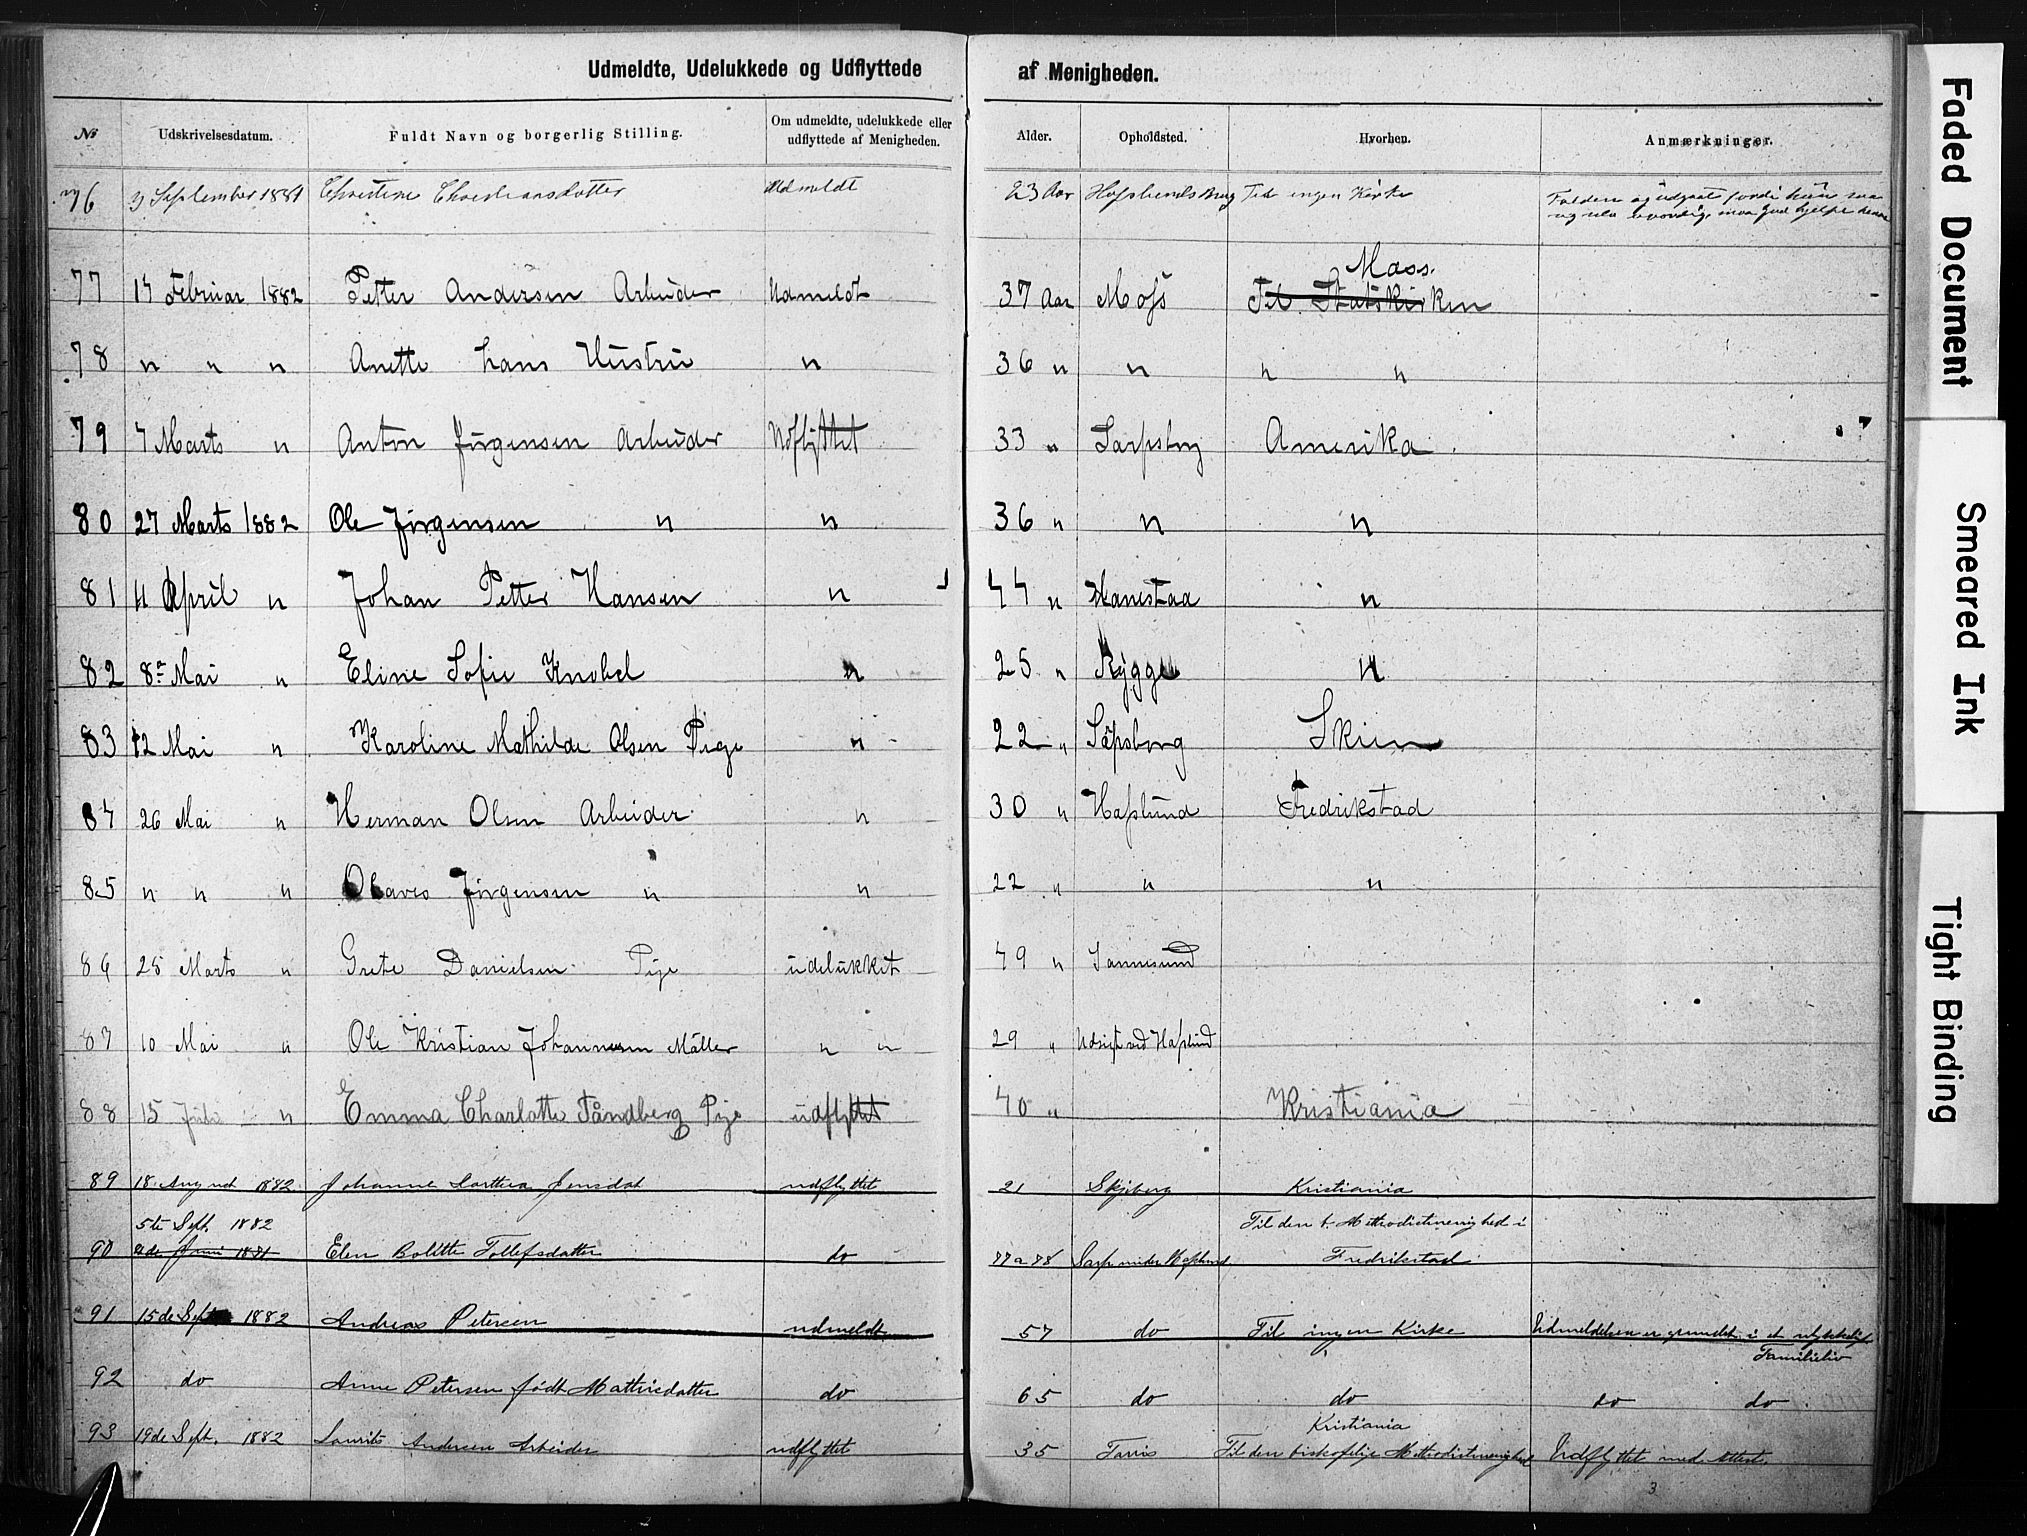 Udmeldte, Udelukkede og Udflyttede af Menigheden.
№ Udskrivelsesdatum. Fuldt Navn og borgerlig Stilling. Om udmeldte, udelukkede eller udflyttede af Menigheden. Alder. Opholdsted. Hvorhen. Anmærkninger.
76 3 September 1881 Christine Christiansdatter Udmeldt 23 Aar Hafslunds Brug Til ingen Kirke
Mass.
77 14 Februar 1882 Petter Andersen Arbeider Udmeldt 37 Aar Moss Til Statskirken
78 " " " Anette hans Hustru " 36 " " " "
79 4 Marts " Anton Jörgensen Arbeider Udflyttet 33 " Sarpsborg Amerika
80 27 Marts 1882 Ole Jörgensen " " 36 " " "
81 11 April " Johan Petter Hansen " 44 " Hanestaa "
82 8de Mai " Eline Sofie Knobel " 25 " Rygge "
83 12 Mai " Karoline Mathilde Olsen Pige " 22 " Sapsborg Skien
84 26 Mai " Herman Olsen Arbeider " 30 " Hafslund Fredrikstad
85 " " " Olaves Jörgensen " " 22 " " "
86 25 Marts " Grete Danielsen Pige udelukket 49 " Sannesund
87 10 Mai " Ole Kristian Johannesen Möller " " 29 " Udsigt ved Hafslund
88 15 " Emma Charlotte Tåndberg Pige udflyttet 40 " Kristiania
89 18. August 1882. Johanne Dorthea Jensdat udflyttet 21 Skjeberg Kristiania
5te Sept. 1882 Til den b. Methodistmenighed i
90 Juni 1881 Elen Bolette Tollefsdatter do 77 a 78 Sarp under Hafslund Fredrikstad
91 15de Sept 1882 Andreas Petersen udmeldt 57 do Til ingen Kirke Udmeldelsen er grundet i et ulykkeligt
Familieliv
92 do Anne Petersen født Mathisdatter do 65 do do do do
Kristiania
93 19de Sept. 1882 Laurits Andersen Arbeider udflyttet 35 Til den biskopelige Methodistmenighed Udflyttet med Attest.
3
Faded Document
Smeared Ink
Tight Binding